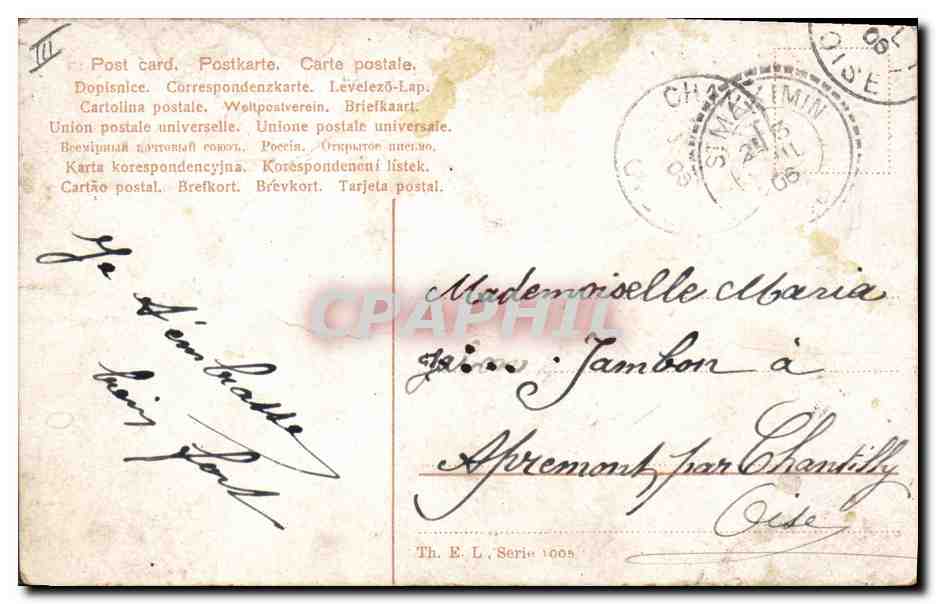 III
Post card. Postkarte. Carte postale.
Dopisnice. Correspondenzkarte. Levelező-Lap.
Cartolina postale. Weltpostverein. Briefkaart.
Union postale universelle. Unione postale universale.
Всемірный почтовый союзъ. Россія. Открытое письмо.
Karta korespondencyjna. Korespondenční lístek.
Cartão postal. Brefkort. Brevkort. Tarjeta postal.
OISE
06
CHA
ST MAXIMIN
06
Je t'embrasse
bien fort
CPAPHIL
Mademoiselle Maria
Jambon à
Apremont par Chantilly
Oise
Th. E. L., Serie 1005